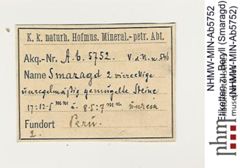 K. k. naturh. Hofmus. Mineral.-petr. Abt.
Akq.-Nr. A.b. 5752.
Name Smaragd 2 viereckige
unregelmäßig gemugelte Steine
17:12·5 mm u. 8·5:7 mm
Fundort Peru.
NHMW-MIN-Ab5752
Beryll (Smaragd)
NHMW-MIN-Ab5752
nhm